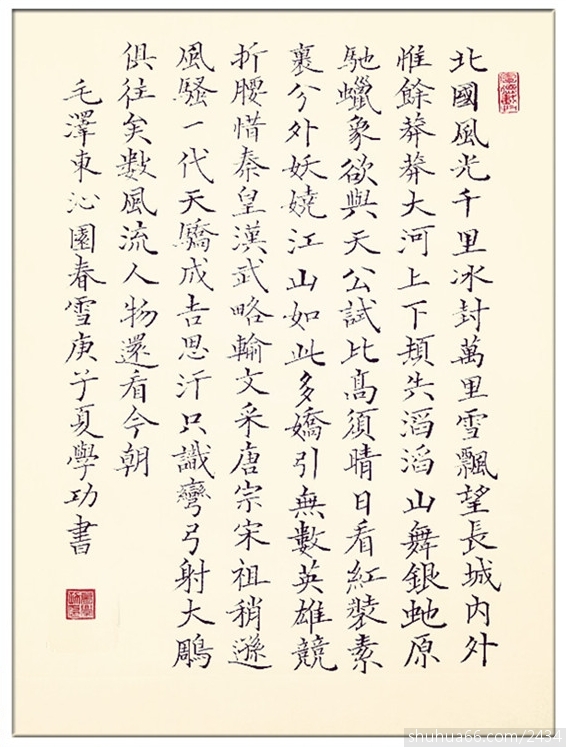 北國風光千里冰封萬里雪飄望長城內外
惟餘莽莽大河上下頓失滔滔山舞銀虵原
馳蠟象欲與天公試比高須晴日看紅裝素
裹分外妖嬈江山如此多嬌引無數英雄競
折腰惜秦皇漢武略輸文采唐宗宋祖稍遜
風騷一代天驕成吉思汗只識彎弓射大鵰
俱往矣數風流人物還看今朝
毛澤東沁園春雪庚子夏學功書
shuhua66.com/2434